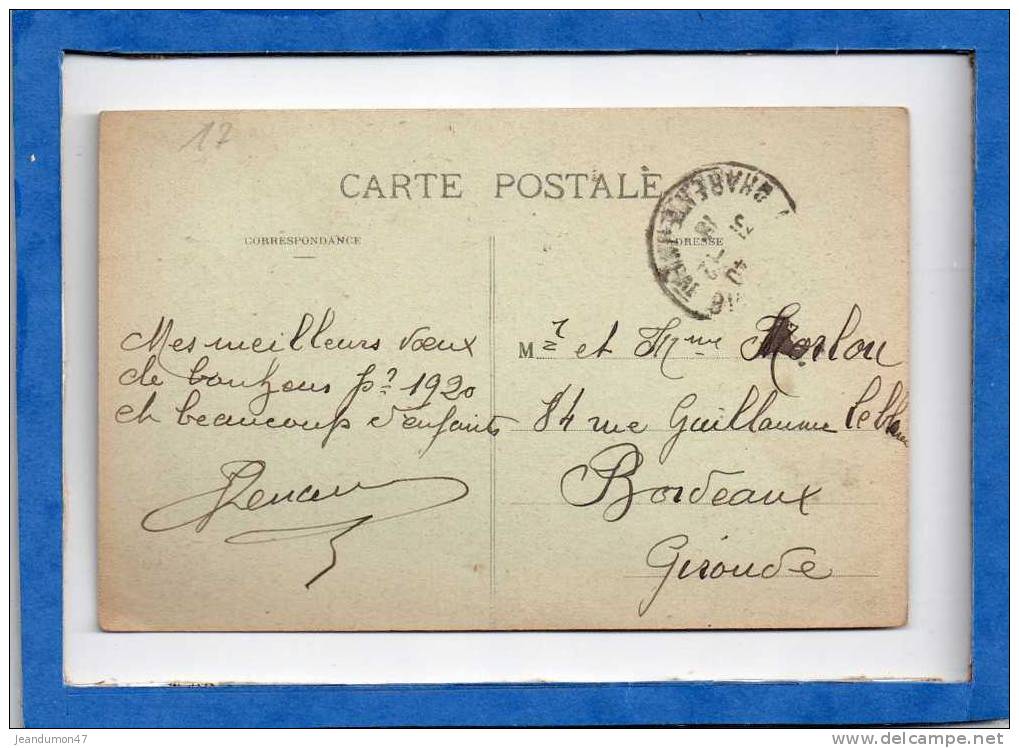 17
CARTE POSTALE
CORRESPONDANCE
ADRESSE
CHARENTE INF
18
31
12
Mes meilleurs vœux
de bonheur pr 1920
et beaucoup d'enfants
Renau
Mr et Mme Morlon
84 rue Guillaume Leblanc
Bordeaux
Gironde
jeandumon47
www.delcampe.net